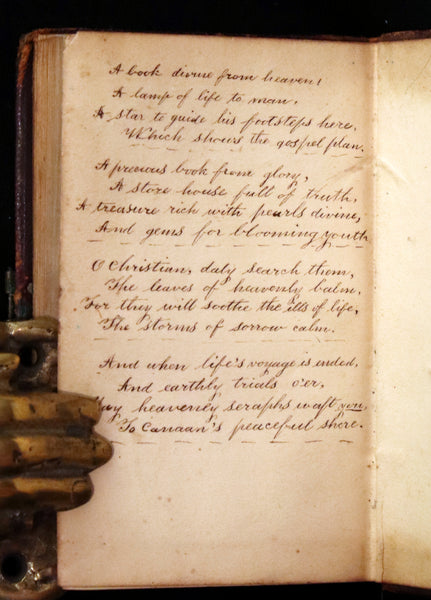 A book divine from heaven,
A lamp of life to man,
A star to guide his footsteps here,
Which shows the gospel plan.
A precious book from glory,
A store house full of truth,
A treasure rich with pearls divine,
And gems for blooming youth
O Christian, daly search them,
The leaves of heavenly balm,
For they will soothe the ills of life,
The storms of sorrow calm.
And when life's voyage is ended,
And earthly trials o'er,
May heavenly seraphs waft you,
To Canaan's peaceful shore.